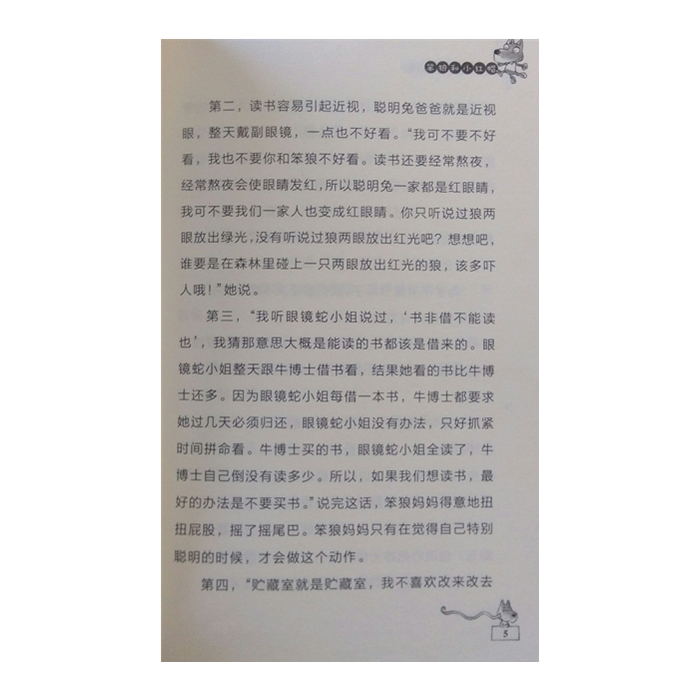 笨狼和小红帽
第二，读书容易引起近视，聪明兔爸爸就是近视
眼，整天戴副眼镜，一点也不好看。“我可不要不好
看，我也不要你和笨狼不好看。读书还要经常熬夜，
经常熬夜会使眼睛发红，所以聪明兔一家都是红眼睛，
我可不要我们一家人也变成红眼睛。你只听说过狼两
眼放出绿光，没有听说过狼两眼放出红光吧？想想吧，
谁要是在森林里碰上一只两眼放出红光的狼，该多吓
人哦！”她说。
第三，“我听眼镜蛇小姐说过，‘书非借不能读
也’，我猜那意思大概是能读的书都该是借来的。眼
镜蛇小姐整天跟牛博士借书看，结果她看的书比牛博
士还多。因为眼镜蛇小姐每借一本书，牛博士都要求
她过几天必须归还，眼镜蛇小姐没有办法，只好抓紧
时间拼命看。牛博士买的书，眼镜蛇小姐全读了，牛
博士自己倒没有读多少。所以，如果我们想读书，最
好的办法是不要买书。”说完这话，笨狼妈妈得意地扭
扭屁股，摇了摇尾巴。笨狼妈妈只有在觉得自己特别
聪明的时候，才会做这个动作。
第四，“贮藏室就是贮藏室，我不喜欢改来改去
5